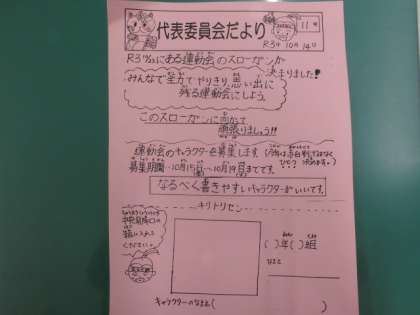 代表委員会だより
11号
R3年10月14日
R3 10/23にある運動会のスローガンが
決まりました!!
みんなで全力でやりきり思い出に
残る運動会にしよう
このスローガンに向かって
頑張りましょう!!
運動会のキャラクターを募集します
募集期間…10月15日から10月19日までです。
なるべく書きやすいキャラクターがいいです。
キリトリセン
ください。
( )年( )組
なまえ
キャラクターのなまえ( )